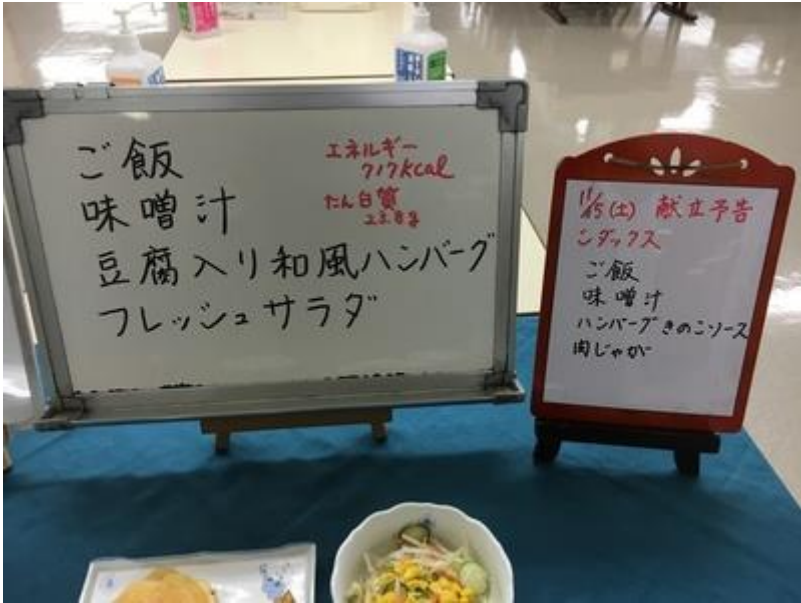 ご飯
味噌汁
豆腐入り和風ハンバーグ
フレッシュサラダ
エネルギー
717kcal
たん白質
23.8g
11/15(土) 献立予告
シダックス
ご飯
味噌汁
ハンバーグきのこソース
肉じゃが